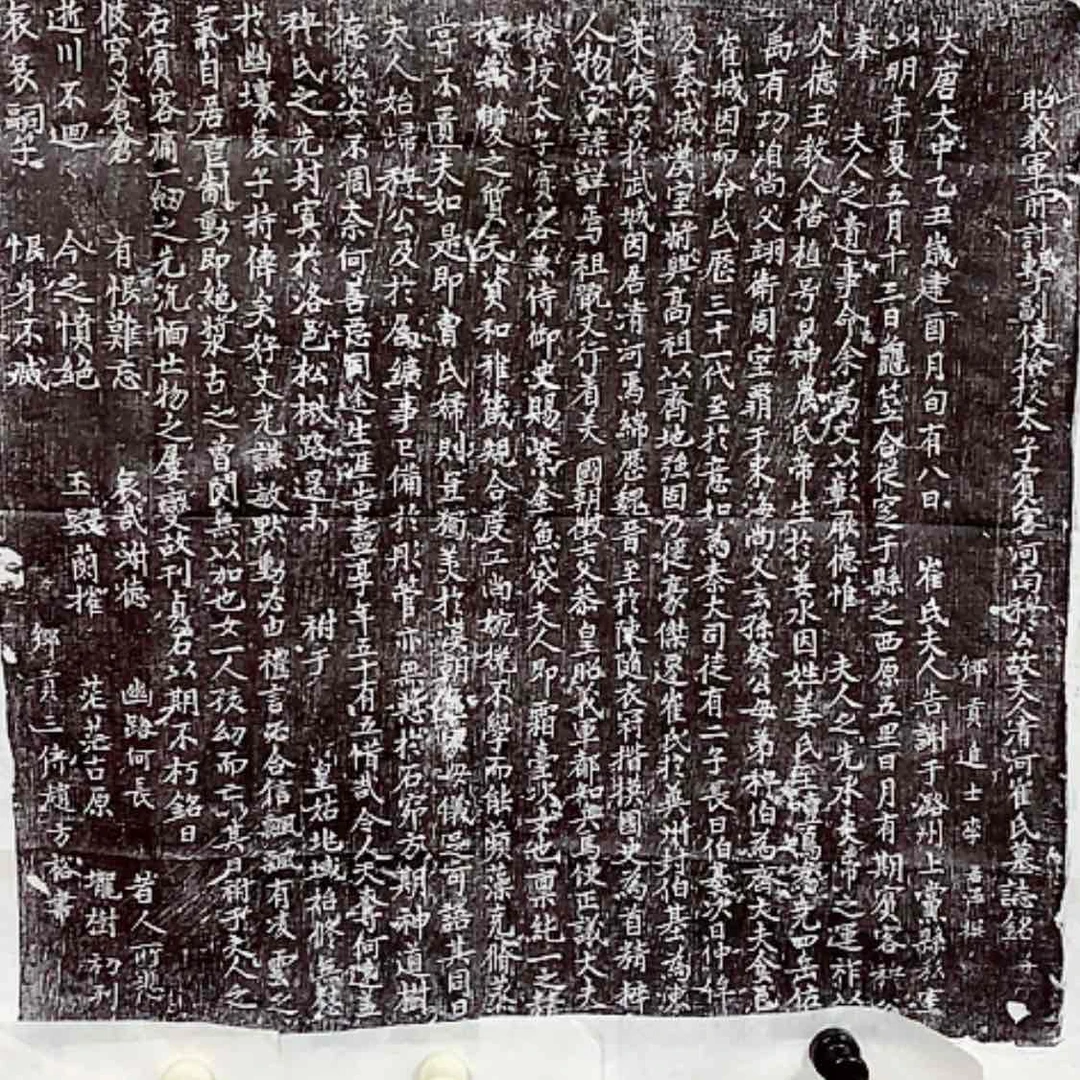 昭義軍節討擊副使檢校太子賓客河南穆公故夫人清河崔氏墓誌銘并
鄉貢進士李
大唐大中乙丑歲建酉月旬有八日 崔氏夫人告謝于潞州上黨縣私室
以明年夏五月十三日龜筮合從窆于縣之西原五里日月有期賓客
奉 夫人之遺事命余為文以彰厥德惟 夫人之先水奏帝之運祚以
火德王教人播植号曰神農氏帝生於姜水因姓姜氏 四岳佐
禹有功洎尚父翊衛周室霸于東海尚父玄孫癸公毋弟穆伯為齊大夫食邑
崔城因而命氏歷三十一代至於意如為秦大司徒有二子長曰伯基次曰仲牟
及秦滅漢室將興高祖以齊地強固乃徙豪傑遷崔氏於冀州封伯基為東
萊侯家於武城因居清河焉綿歷魏晉至於陳隨衣冠楷模國史為首精辯
人物家諜詳焉祖觀文行着美 國朝散士父恭皇昭義軍都知兵馬使正議大夫
檢校太子賓客兼侍御史賜紫金魚袋夫人即霜臺次女也稟純一之粹
挺無雙之質天資和雅箴規合度工尚婉娩不學而能蘋藻克脩
嘗不匱夫如是即曹氏婦則豈獨美於漢朝 毋儀足可語其同日
夫人始歸穆公及於屬纊事已備於彤管亦無慙於石窌方期神道樹
德松姿不凋奈何善惡同途生涯告盡享年五十有五惜哉令人夭壽何
穆氏之先封窴於洛邑松檟路遐未 祔于 皇姑北域祖脩無
於幽壤哀子持偉矣
氣自居喪制動即絕漿古之曾閔無以加也女一人孩幼而亡其月祔于夫人之
右賓客痛一劒之先沉恤世物之屢變故刊貞石以期不朽銘曰
彼穹蒼蒼 有恨難忘 哀哉謝德 幽路何長 昔人所悲
逝川不迴 今之憤絕 玉毀蘭摧 茫茫古原 櫳樹初列
哀哀嗣子 恨身不滅 鄉貢三傳趙方裕書